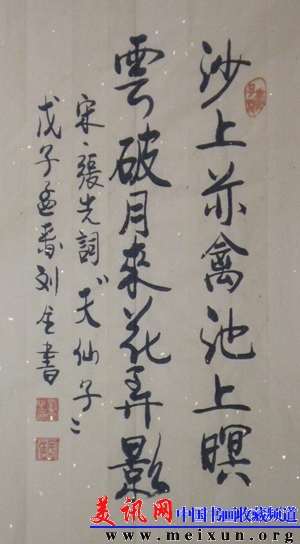 沙上並禽池上暝
雲破月來花弄影
宋、張先詞"天仙子"
戊子孟春刘金書
美讯网 中国书画收藏频道
www.meixun.org